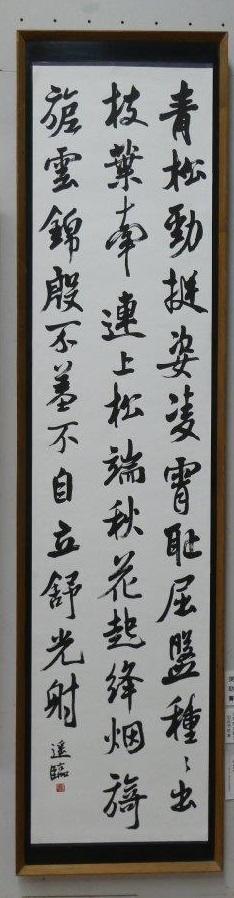 青松勁挺姿凌霄耻屈盤種〻出
枝葉牽連上松端秋花起絳烟旖
旎雲錦殷不羞不自立舒光射
遥臨